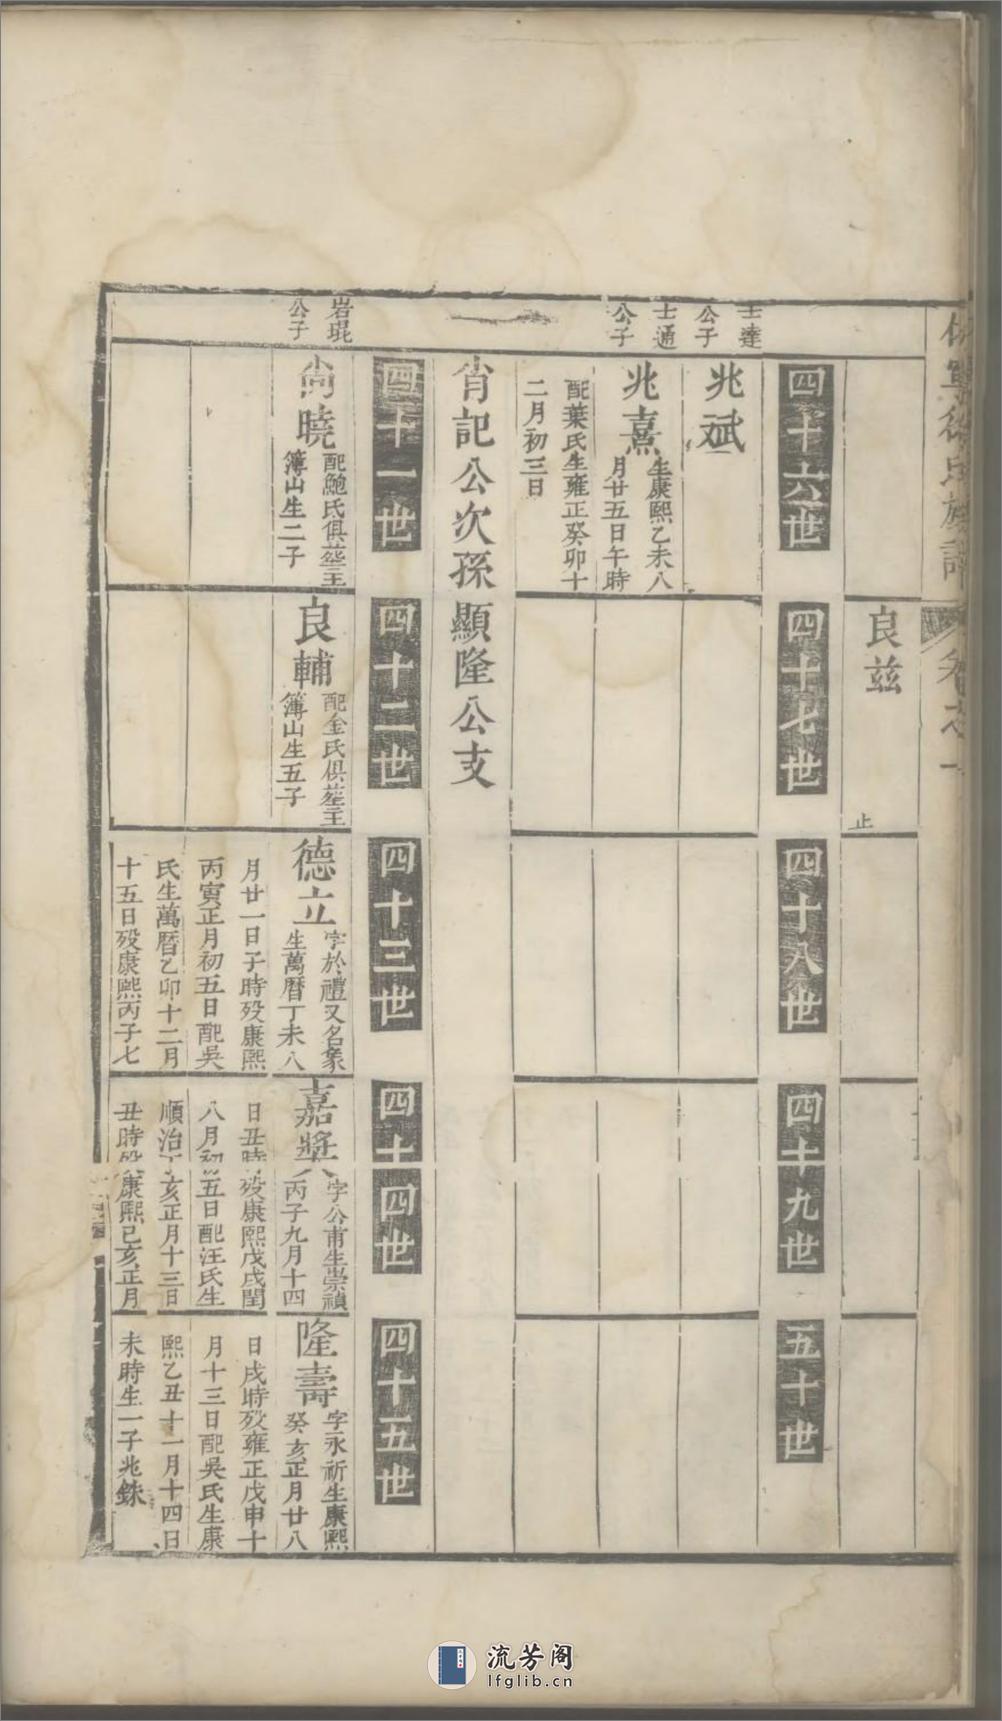 休寧徐氏族譜
卷之一
良兹
止
四十六世
四十七世
四十八世
四十九世
五十世
士達
公子
兆斌
士通
公子
兆熹
生康熙乙未八
月廿五日午時
配葉氏生雍正癸卯十
二月初三日
肯記公次孫顯隆公支
四十一世
四十二世
四十三世
四十四世
四十五世
岩琨
公子
尚曉
配鮑氏俱塟王
簿山生二子
良輔
配金氏俱塟王
簿山生五子
德立
字於禮又名象
生萬曆丁未八
月廿一日子時殁康熙
丙寅正月初五日配吳
氏生萬曆乙卯十二月
十五日殁康熙丙子七
嘉獎
字公甫生崇禎
丙子九月十四
日丑時殁康熙戊戌閏
八月初五日配汪氏生
順治丁亥正月十三日
丑時殁康熙己亥正月
隆壽
字永祈生康熙
癸亥正月廿八
日戌時殁雍正戊申十
月十三日配吳氏生康
熙乙丑十一月十四日
未時生一子兆銖
流芳阁
lfglib.cn